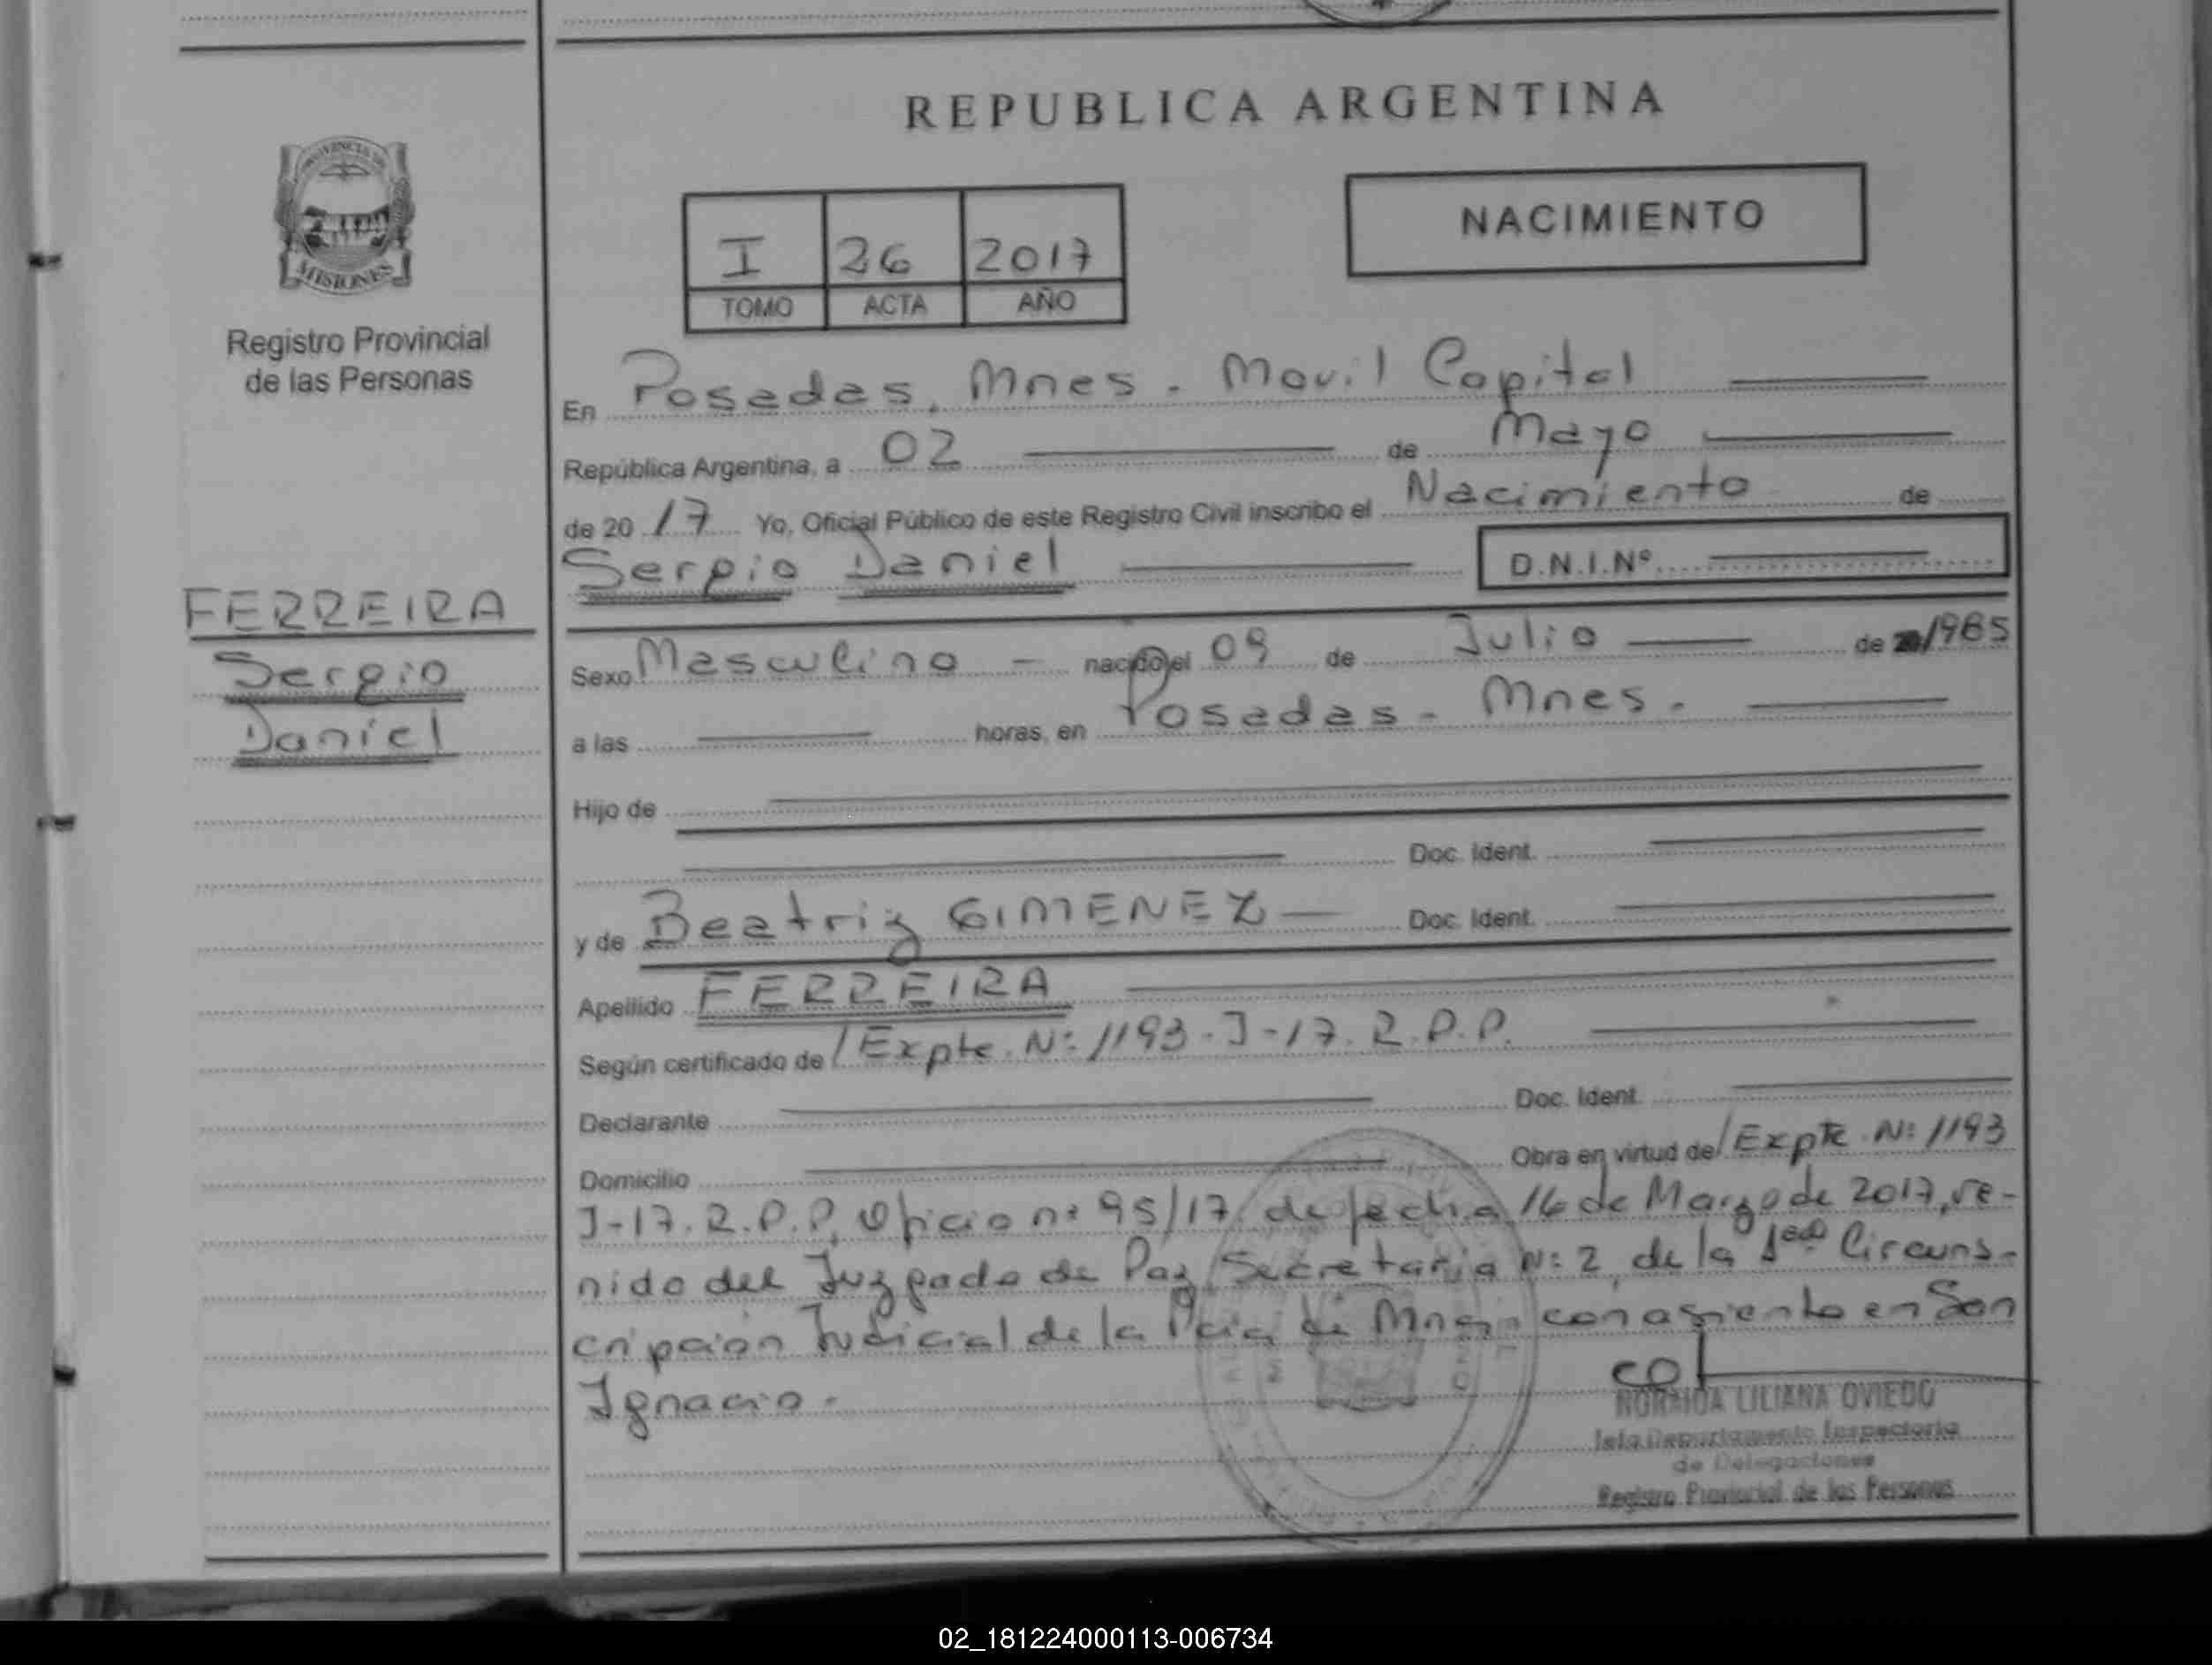 REPUBLICA ARGENTINA
PROVINCIA DE
MISIONES
Registro Provincial
de las Personas
I 26 2017
TOMO ACTA AÑO
NACIMIENTO
En Posadas, Mnes. Movil Capital
República Argentina, a 02 de Mayo
de 20 17 Yo, Oficial Público de este Registro Civil inscribo el Nacimiento de
Sergio Daniel D.N.I.Nº
FERREIRA
Sergio
Daniel
Sexo Masculino - nacido el 09 de Julio de 1985
a las horas, en Posadas - Mnes.
Hijo de
Doc. Ident.
y de Beatriz GIMENEZ Doc. Ident.
Apellido FERREIRA
Según certificado de / Expte. N: 1193-J-17. R.P.P.
Declarante Doc. Ident.
Domicilio Obra en virtud de / Expte N: 1193
J-17. R.P.P, Oficio nº 95/17, de fecha 16 de Marzo de 2017, ve-
nido del Juzgado de Paz, Secretaria Nº 2, de la 1era Circuns-
cripción Judicial de la Pcia de Mnes. con asiento en San
Ignacio.
NORMIDA LILIANA OVIEDO
Jefa Departamento Inspectoria
de Delegaciones
Registro Provincial de las Personas
02_181224000113-006734